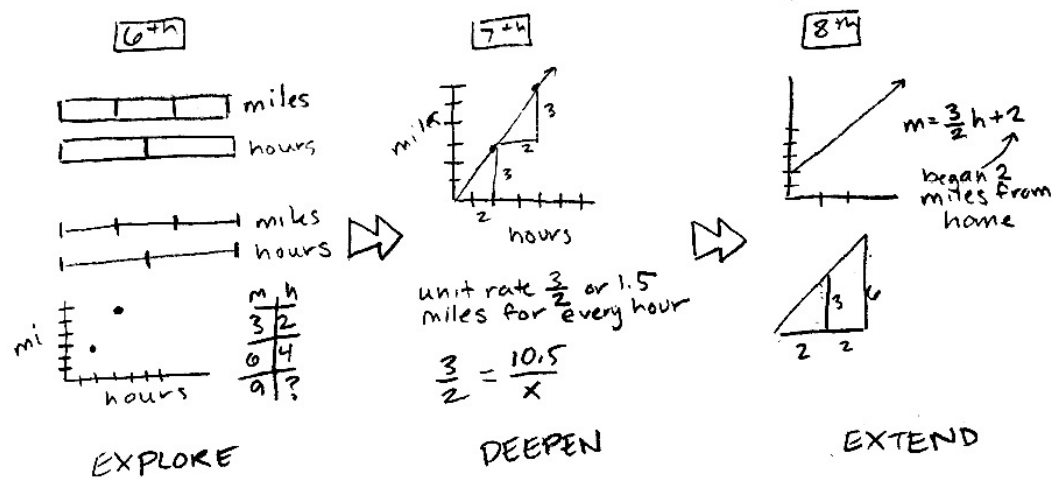 6th
miles
hours
miles
hours
mi
hours
m h
3 2
6 4
9 ?
EXPLORE
7th
miles
3
2
3
2
hours
unit rate 3/2 or 1.5
miles for every hour
3/2 = 10.5/x
DEEPEN
8th
m = 3/2 h + 2
began 2
miles from
home
3
6
2 2
EXTEND